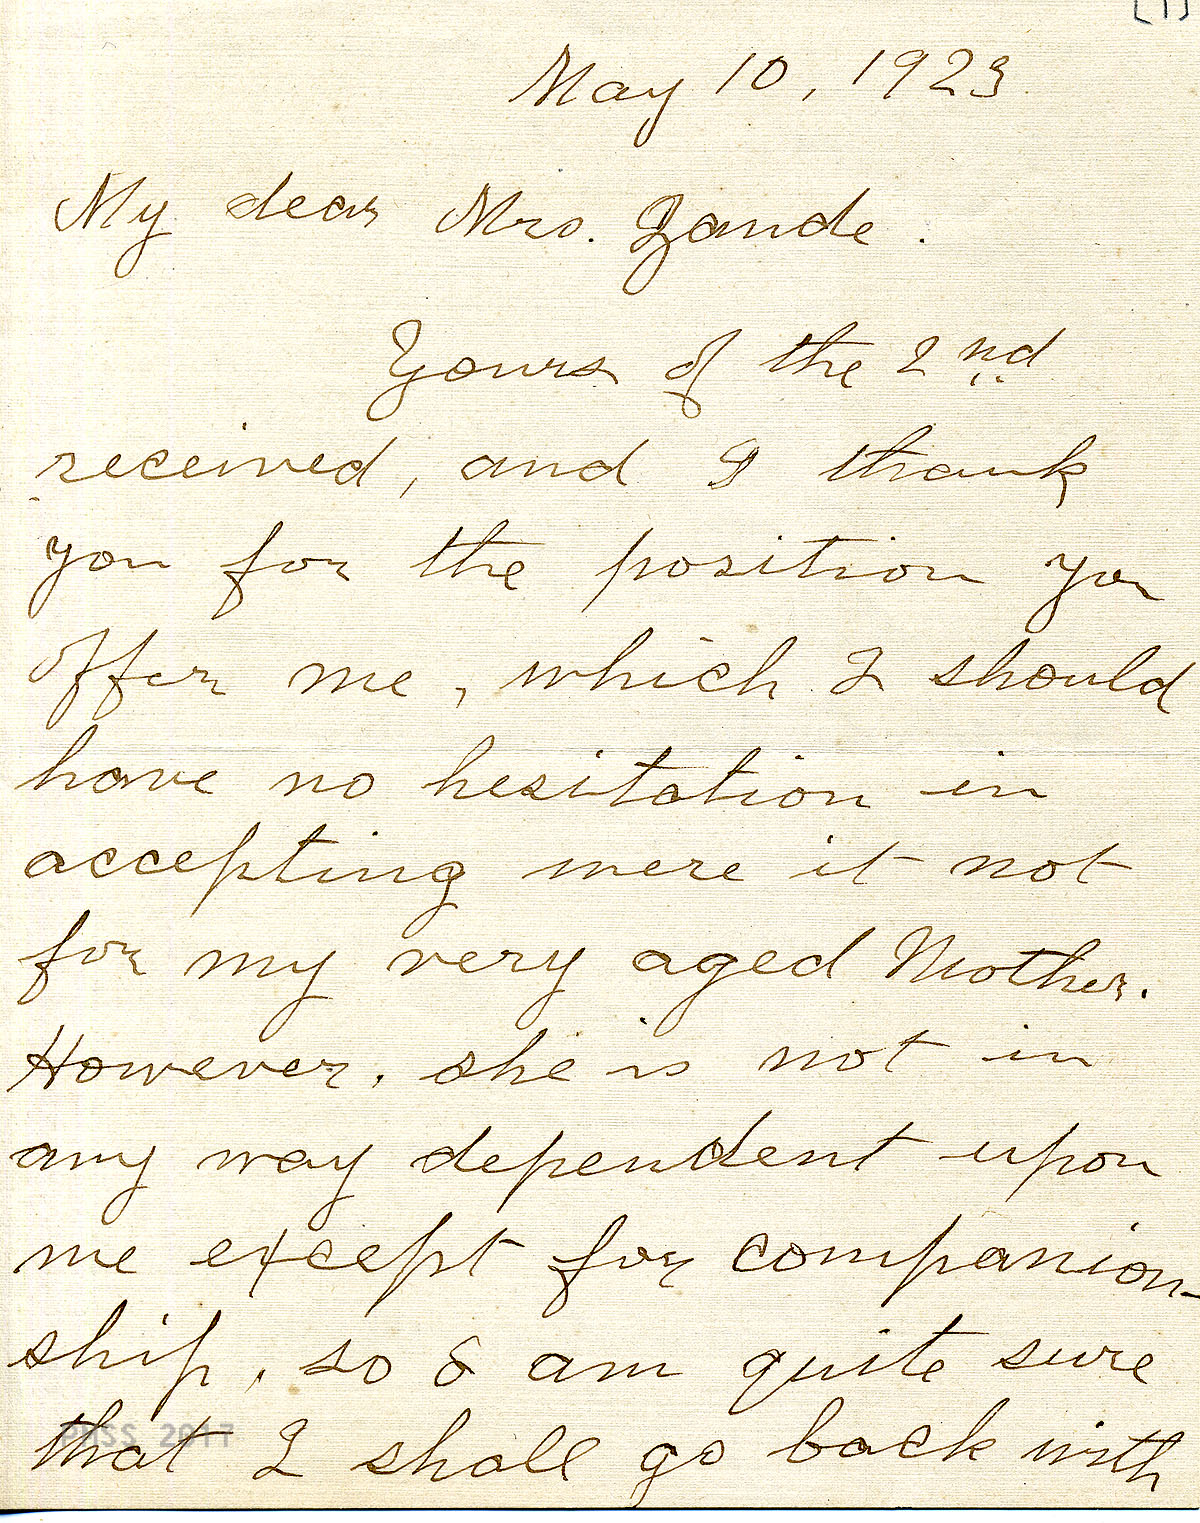 [1]
May 10, 1923
My dear Mrs. Zande.
Yours of the 2nd
received, and I thank
you for the position you
offer me, which I should
have no hesitation in
accepting were it not
for my very aged Mother.
However, she is not in
any way dependent upon
me except for companion-
ship, so I am quite sure
that I shall go back with
PMSS 2017